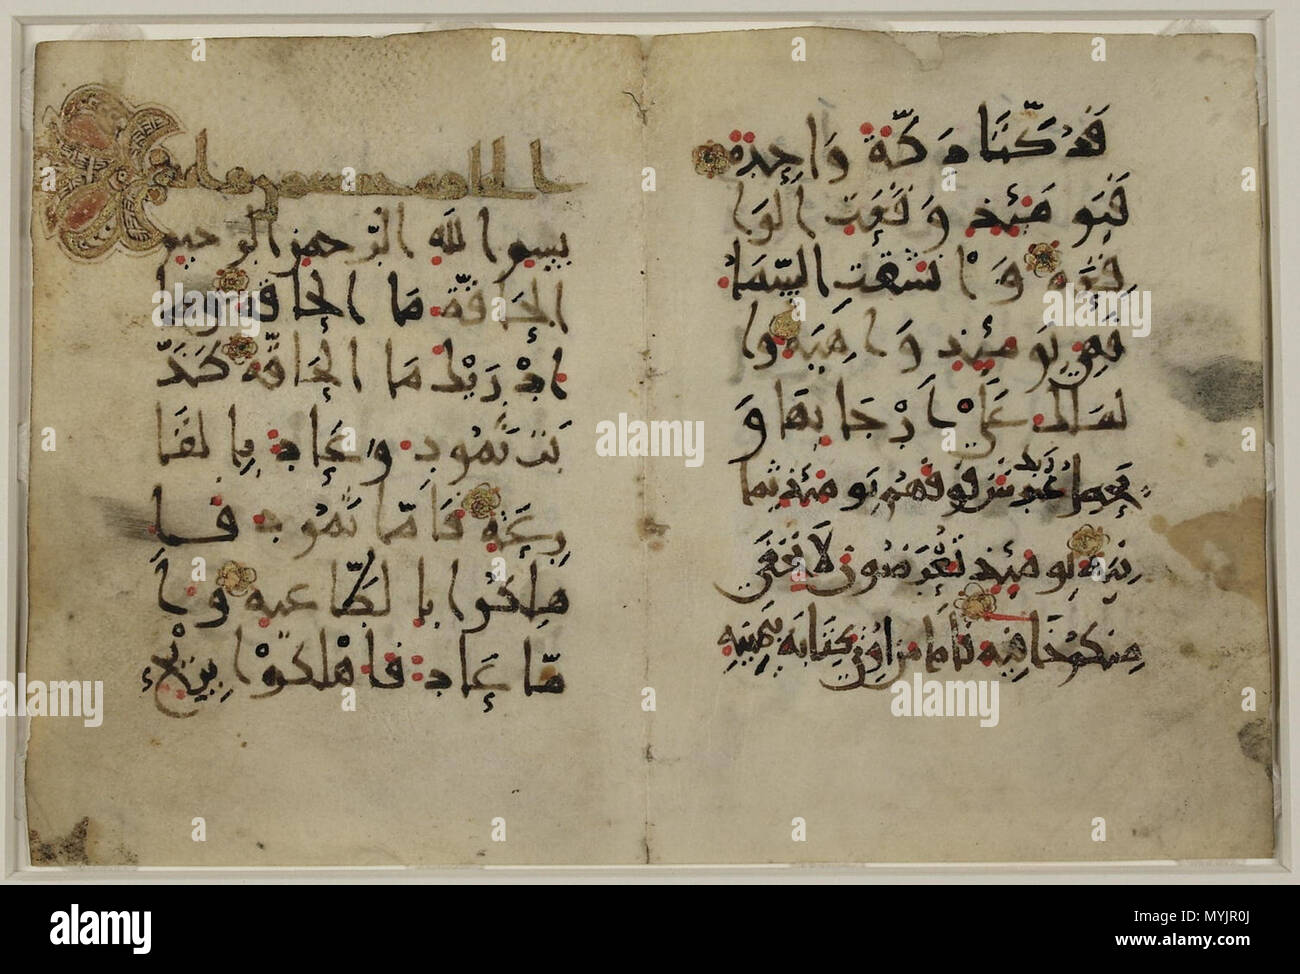 فدكتا دكة واحدة
فيومئذ وقعت الوا
قعة وانشقت السما
فهي يومئذ واهية وا
لملك على ارجائها و
يحمل عرش ربك فوقهم يومئذ ثما
نية يومئذ تعرضون لا تخفى
منكم خافية فاما من اوتي كتابه بيمينه
بسم الله الرحمن الرحيم
الحاقة ما الحاقة وما
ادريك ما الحاقة كذ
بت ثمود وعاد بالقا
رعة فاما ثمود فا
هلكوا بالطاغية وا
ما عاد فاهلكوا بريح
alamy
Image ID: MYJR0J
www.alamy.com